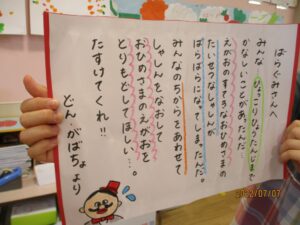 ばらぐみさんへ
みんな ひょっこりひょうたんじまで
かなしいことがあったんだ…
えがおのすてきなおひめさまの
たいせつなしゃしんが
ばらばらになってしまったんだ。
みんなのちからをあわせて
しゃしんをなおして
おひめさまのえがおを
とりもどしてほしい…。
たすけてくれ!!
どん・がばちょより
2022/07/07